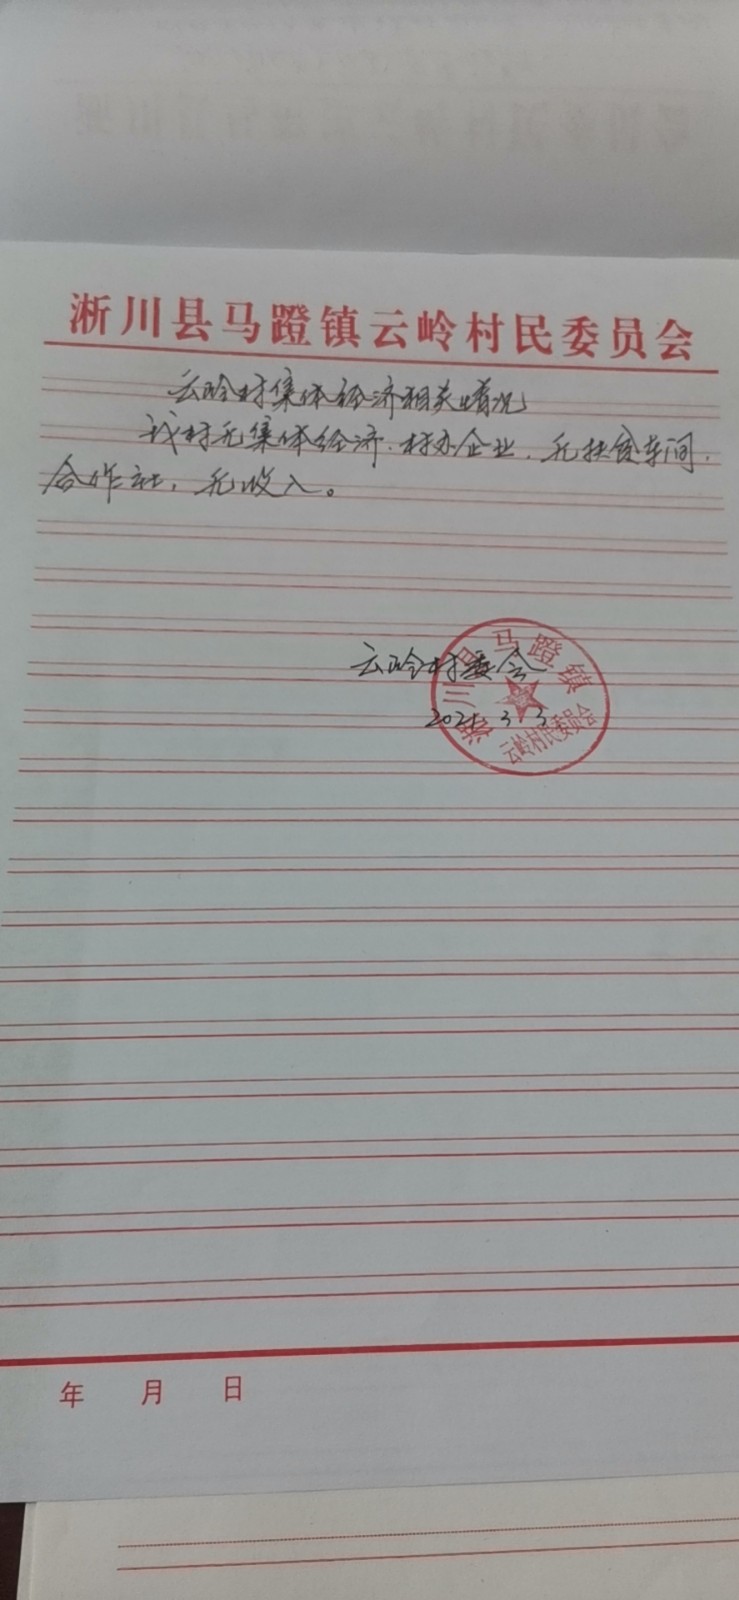 淅川县马蹬镇云岭村民委员会
云岭村集体经济相关情况
我村无集体经济.村办企业.无扶贫车间.
合作社,无收入。
云岭村委会
2021.3.3
淅川县马蹬镇
云岭村民委员会
年 月 日